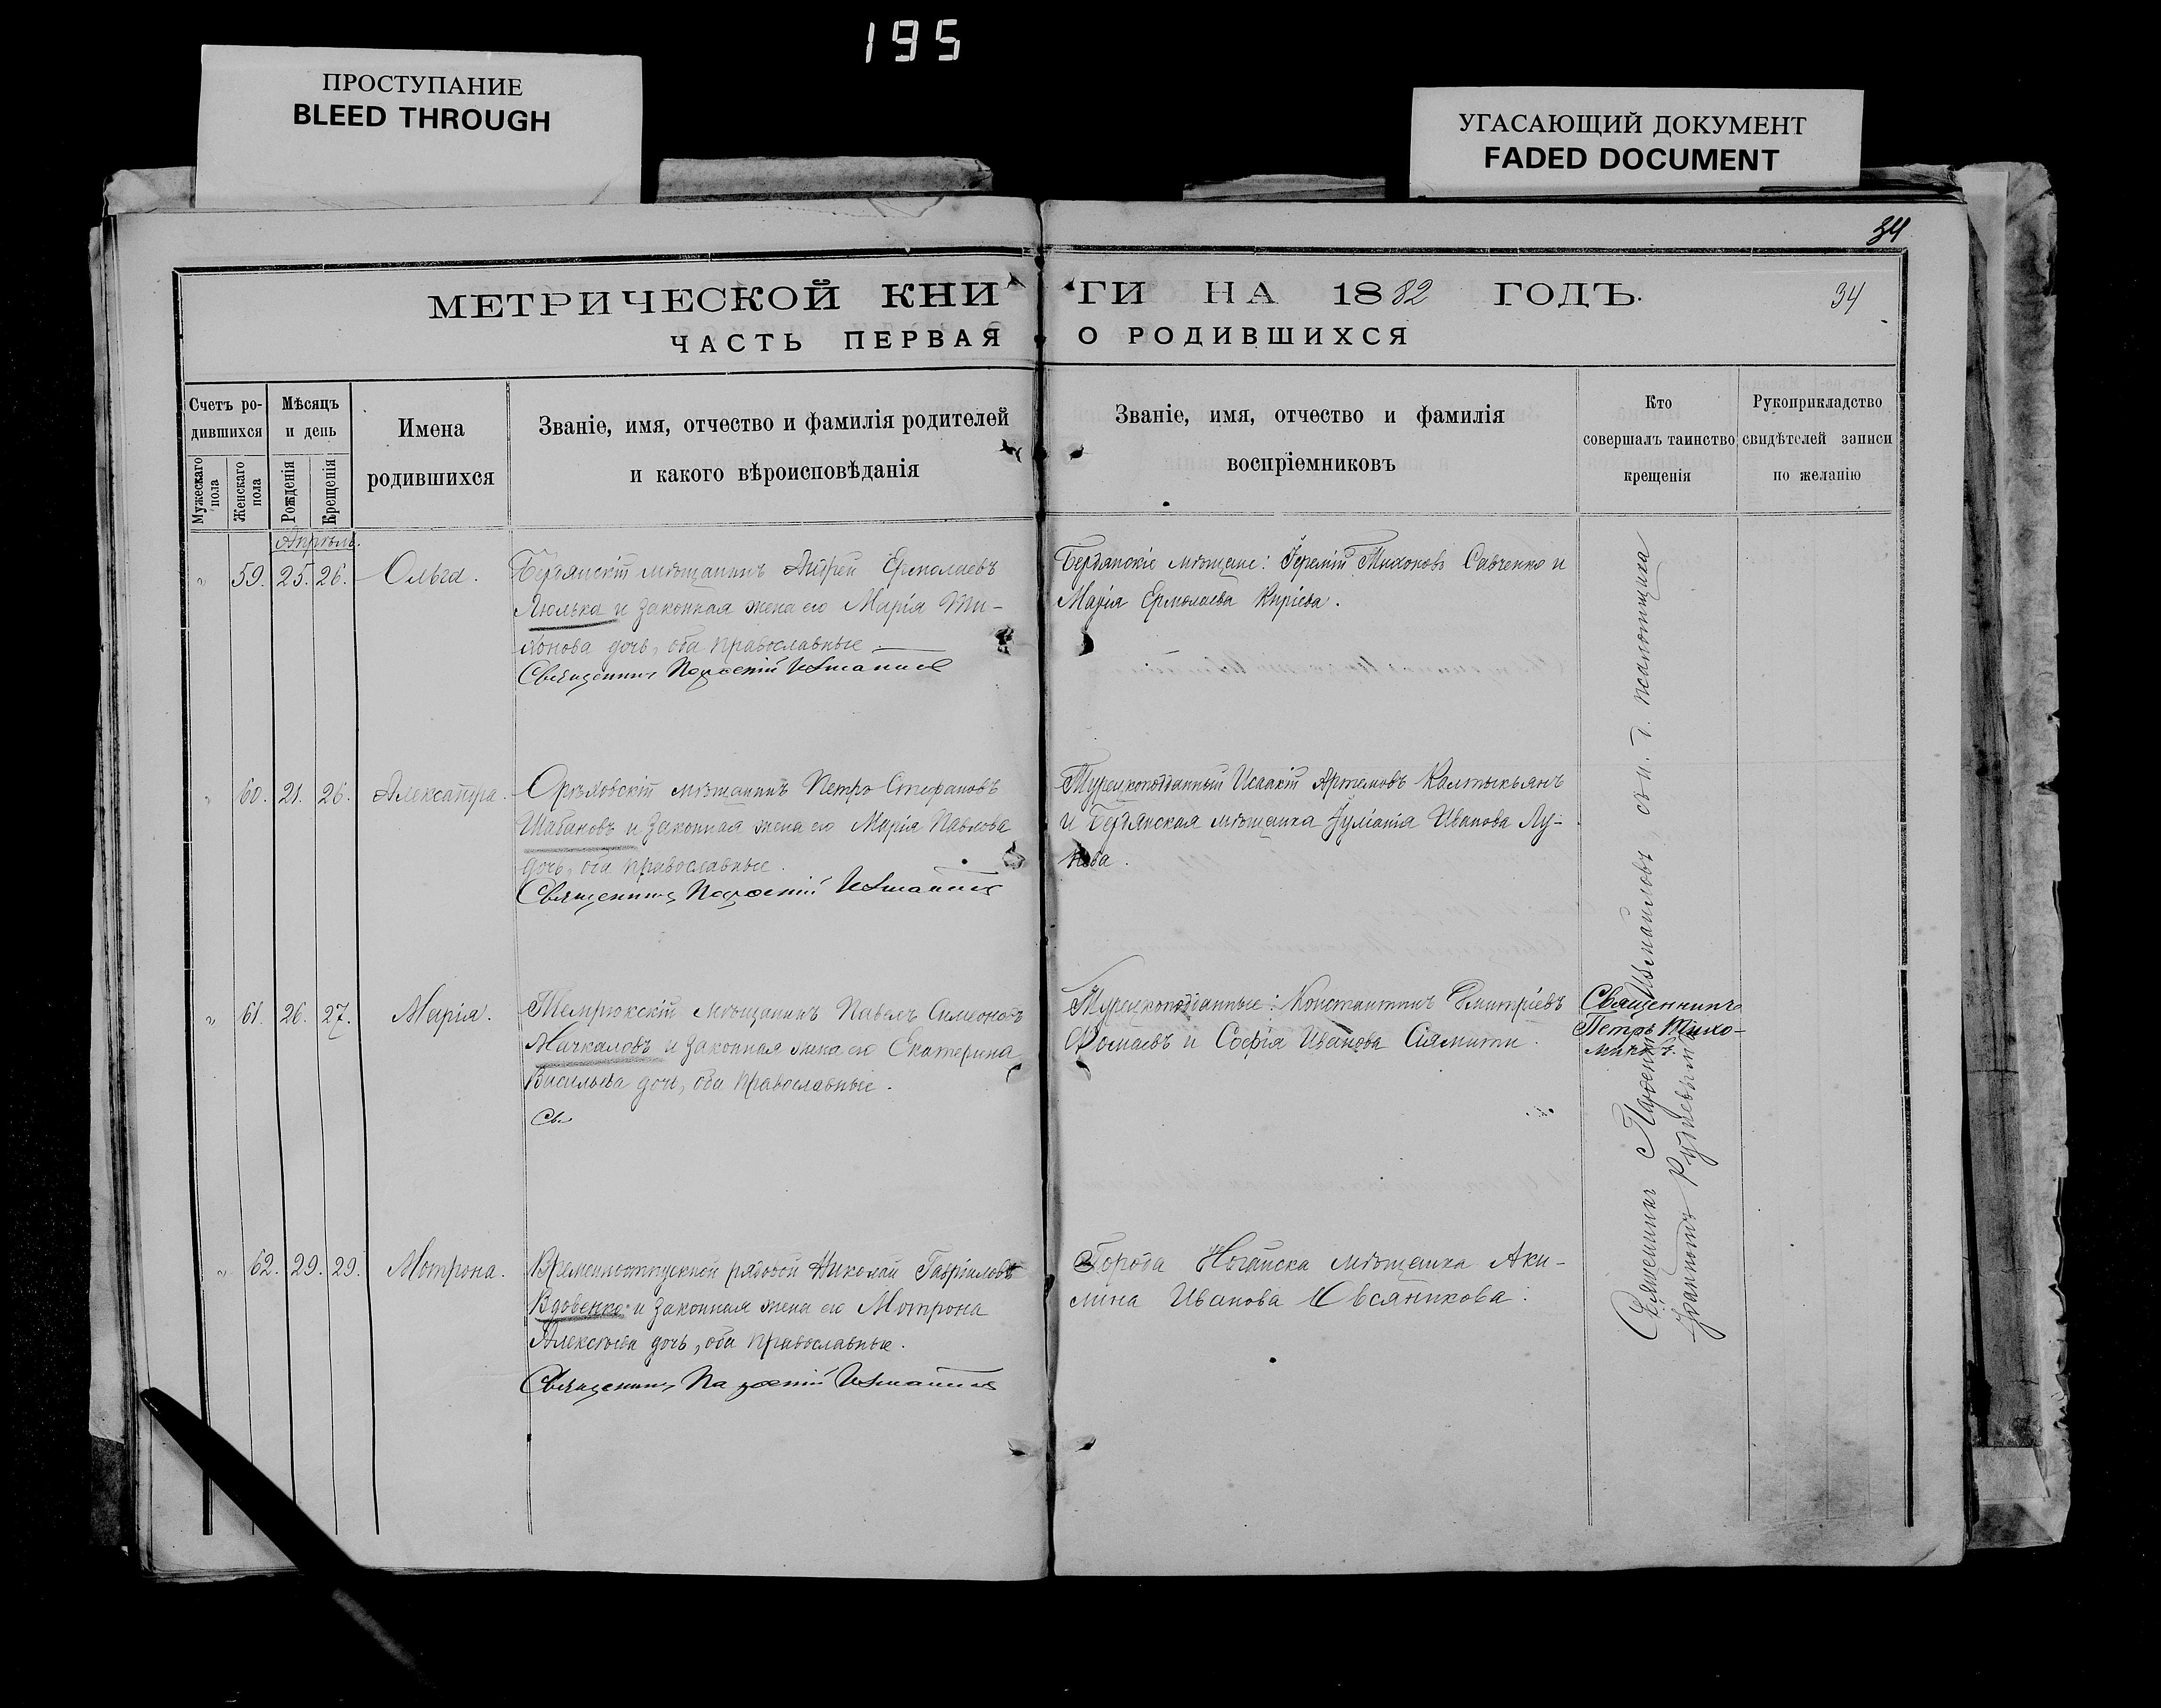 195
ПРОСТУПАНИЕ
BLEED THROUGH
УГАСАЮЩИЙ ДОКУМЕНТ
FADED DOCUMENT
34
МЕТРИЧЕСКОЙ КНИГИ НА 1882 ГОДЪ.
34
ЧАСТЬ ПЕРВАЯ О РОДИВШИХСЯ
Счетъ ро-
дившихся
Мужескаго пола
Женскаго пола
Мѣсяцъ
и день
Рожденія
Крещенія
Имена
родившихся
Званіе, имя, отчество и фамилія родителей
и какого вѣроисповѣданія
Званіе, имя, отчество и фамилія
воспріемниковъ
Кто
совершалъ таинство
крещенія
Рукоприкладство
свидѣтелей записи
по желанію
Апрѣль.
„ 59. 25. 26. Ольга.
Бердянскій мѣщанинъ Андрей Ермолаевъ
Люлька и законная жена его Марія Ти-
хонова дочь, оба православные.
Священникъ
Бердянскіе мѣщане: Іеремій Тихоновъ Савченко и
Марія Ермолаева Киріева.
„ 60. 21. 26. Александра.
Орѣховскій мѣщанинъ Петръ Стефановъ
Шабановъ и законная жена его Марія Павлова
дочь, оба православные.
Священникъ
Турецкоподданный Исаакій Артемовъ Калтыкьянъ
и Бердянская мѣщанка Іуліанія Иванова Лу-
нева.
„ 61. 26. 27. Марія.
Темрюкскій мѣщанинъ Павелъ Симеоновъ
Мачкаловъ и законная жена его Екатерина
Васильева дочь, оба православные.
Св.
Турецкоподданные: Константинъ Димитріевъ
Фомаевъ и Софія Иванова Сиямити.
Священникъ
Петръ Тихо-
„ 62. 29. 29. Мотрона.
Временноотпускной рядовой Николай Гавріиловъ
Вдовенко и законная жена его Мотрона
Алексѣева дочь, оба православные.
Священникъ
Города Ногайска мѣщанка Аки-
лина Иванова Овсяникова.
Священникъ Измаиловъ съ и. д. псаломщика